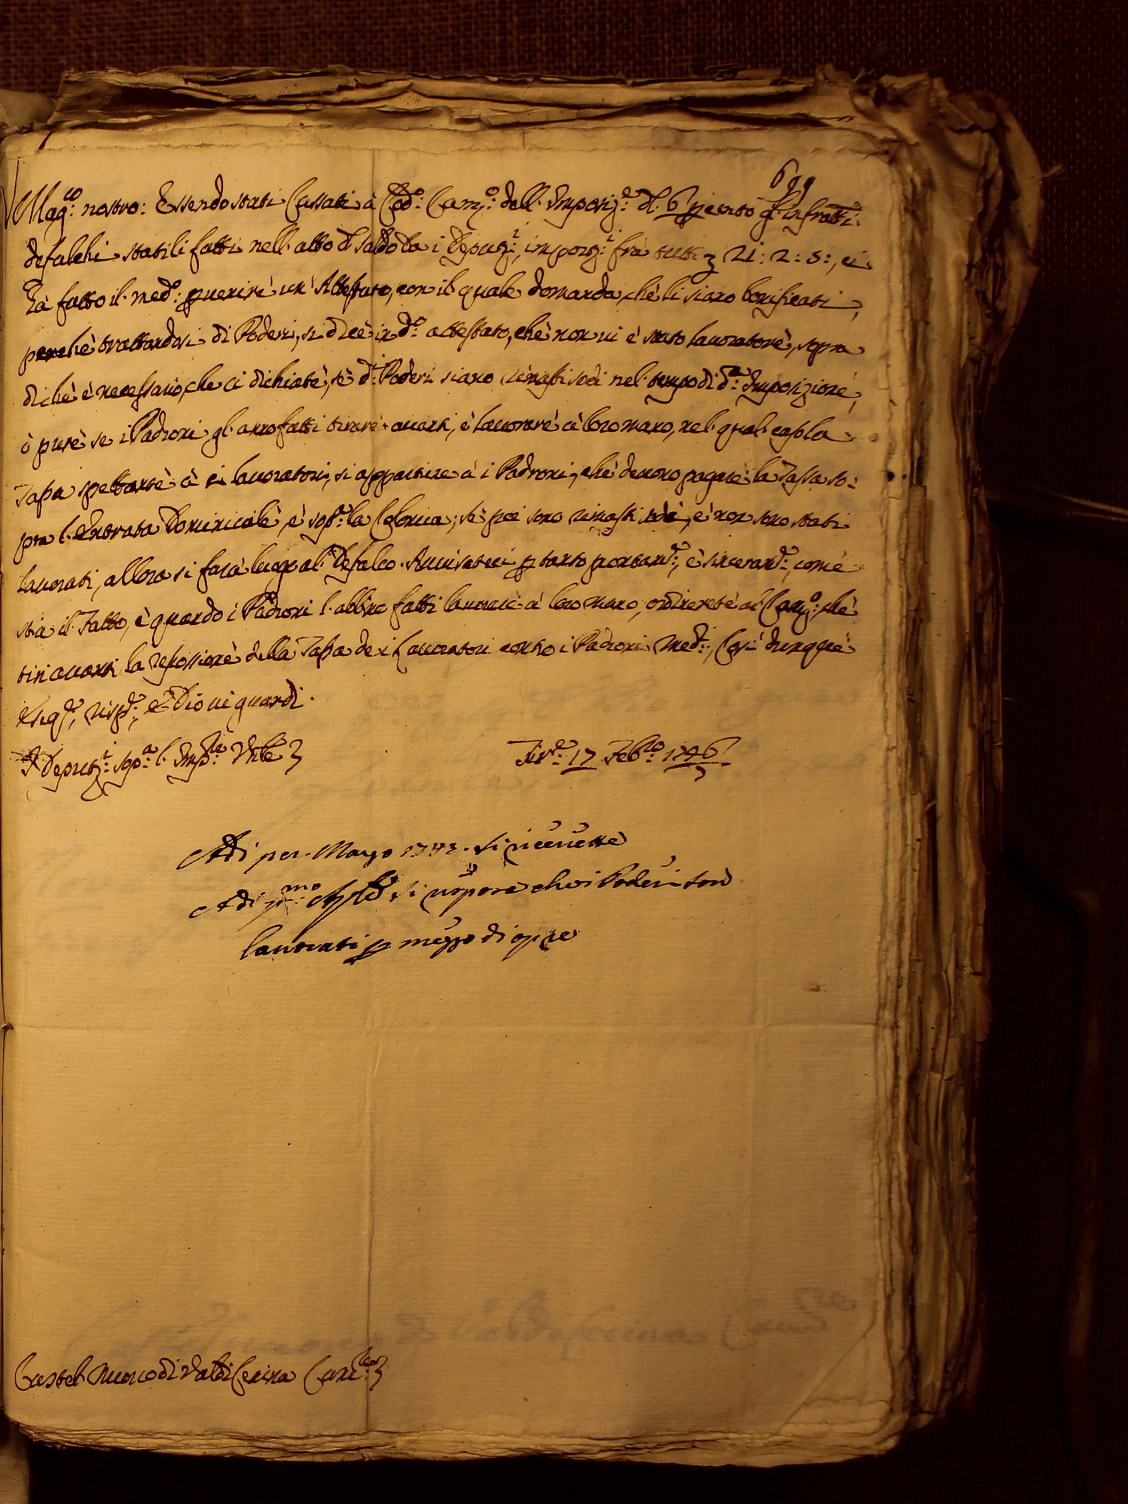 699
Mag:co nostro: Essendo stati Cassati à Cod:o Cam:o dell'Imposiz:e del 6 per cento gl'infratti
defalchi statili fatti nell'atto del saldo da i Deputi:, import:i fra tutti 21: 2: 8:, ci
hà fatto il med:o pervenire un'Attestato, con il quale domanda, che li siano bonificati,
perchè trattandosi di Poderi, si dice in d:o attestato, che non vi è stato lavoratore, sopra
di che è necessario, che ci dichiate, se d:i Poderi siano rimasti sodi nel tempo di d:a Imposizione,
ò pure se i Padroni gl'anno fatti tirare avanti, e lavorare à loro mano, nel qual caso la
Tassa spettante à i lavoratori, si appartiene à i Padroni, che devono pagare la Tassa so-
pra l'Entrata Dominicale, e sop:a la Colonica; se poi sono rimasti sodi, e non sono stati
lavorati, allora si farà luogo al Defalco. Avvisateci per tanto puntualm:e, e sinceram:e, come
stia il Fatto, e quando i Padroni l'abbino fatti lavorare à loro mano, ordinerete al Cam:o che
tiri avanti la riscossione della Tassa de i Lavoratori contro i Padroni Med:i, Così dunque
eseg:e, risp:e, e Dio vi guardi.
I Deput:i sop:a l'Imp:ne Un:le
Fir:e 17 Feb:ro 1746
Adi p:o Marzo 1747. si ricevette
Adi p:mo Ap:le si rispose che i Poderi son
lavorati per mezzo di opre
Castel Nuovo di Val di Cecina Canc:re